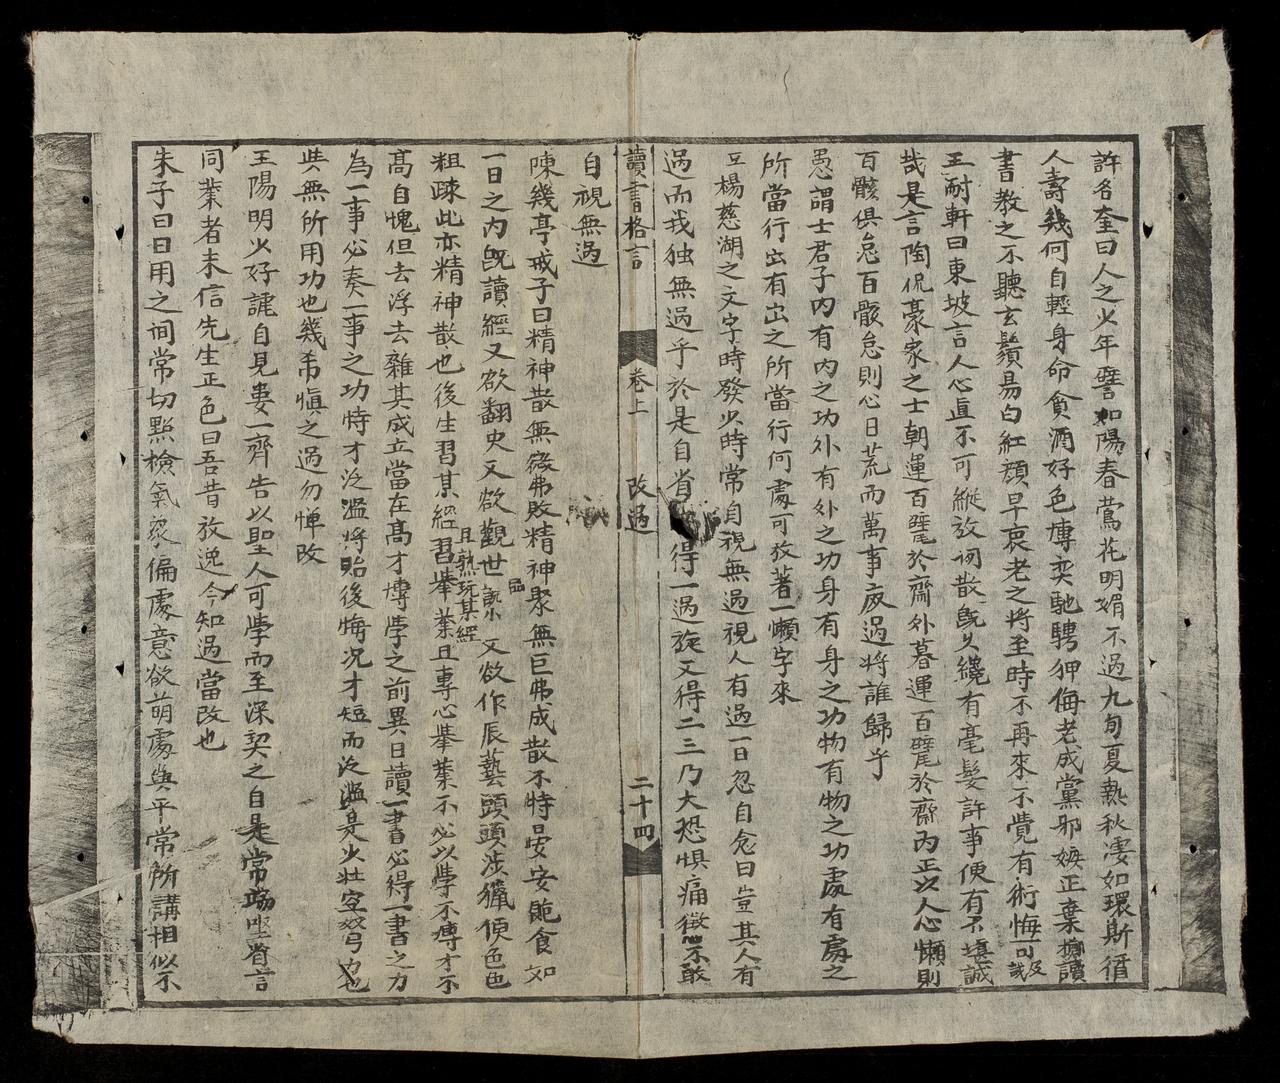 許名奎曰人之少年譬如陽春鶯花明媚不過九旬夏熱秋凄如環斯循
人壽幾何自輕身命貪酒好色博奕馳騁狎侮老成黨邪嫉正棄擲讀
書教之不聽玄鬚易白紅顏早衰老之將至時不再來不覺有術悔可及
王耐軒曰東坡言人心真不可縱放閑散既久纔有毫髮許事便有不堪誠
哉是言陶侃豪家之士朝運百甓於齋外暮運百甓於齋內正以人心懶則
百骸俱怠百骸怠則心日荒而萬事廢過將誰歸乎
愚謂士君子內有內之功外有外之功身有身之功物有物之功處有處之
所當行出有出之所當行何處可放著一懶字來
楊慈湖之文字時發少時常自視無過視人有過一日忽自念曰豈其人有
過而我独無過乎於是自省得一過旋又得二三乃大恐惧痛懲不敢
讀書格言 卷上 改過 二十四
自視無過
陳幾亭戒子曰精神散無微弗敗精神聚無巨弗成散不特晏安飽食如
一日之內既讀經又欲翻史又欲觀世說小品又欲作辰藝頭頭涉獵便色色
粗疎此亦精神散也後生習某經且熟玩某經習舉業且專心舉業不必以學不博才不
高自愧但去浮去雜其成立當在高才博學之前異日讀一書必得一書之力
為一事必奏一事之功恃才泛濫將貽後悔况才短而泛濫是少壯空努力也
此無所用功也幾希慎之過勿憚改
王陽明少好謔自見婁一齊告以聖人可學而至深契之自是常端坐省言
同業者未信先生正色曰吾昔放逸今知過當改也
朱子曰日用之间常切點檢氣象偏處意欲萌處與平常所講相似不